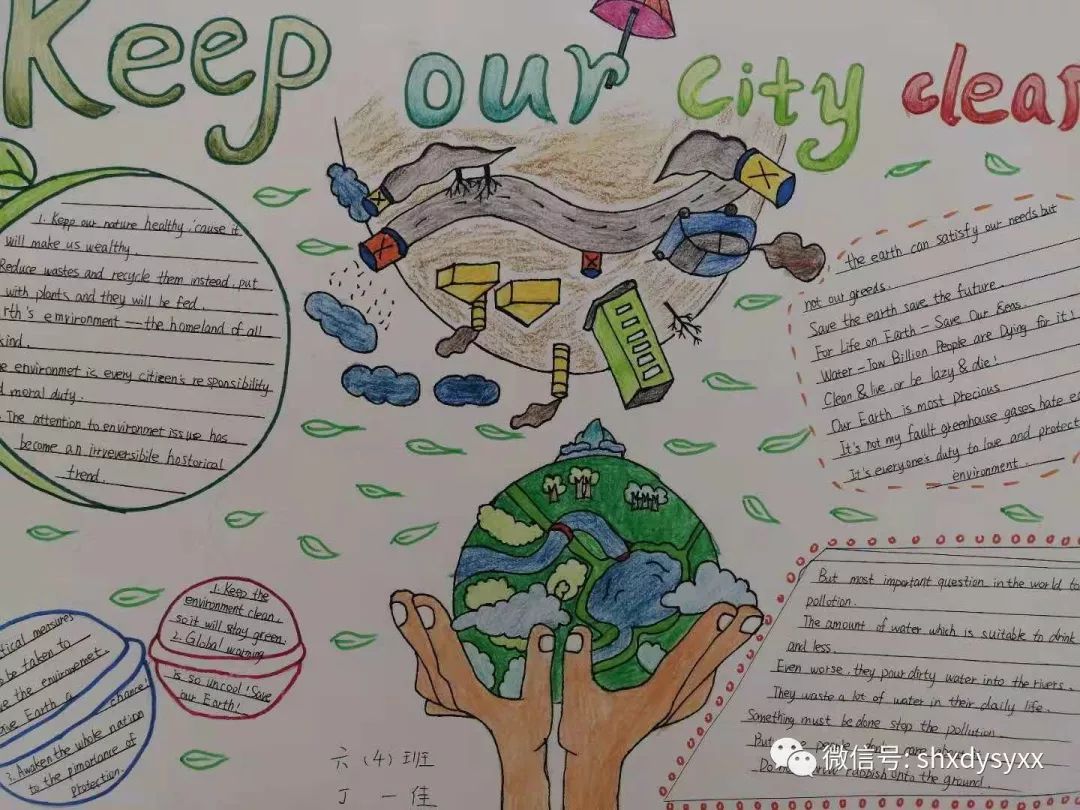 Keep our city clean
1. Kepp our nature healthy, 'cause it
will make us wealthy.
Reduce wastes and recycle them instead, put
with plants and they will be fed.
rth's emvironment — the homeland of all
kind.
environmet is every citizen's responsibility
moral duty.
The attention to environmet issue has
become an irreversibile hostorical
trend.
the earth can satisfy our needs but
not our greeds.
Save the earth save the future.
For Life on Earth – Save Our Seas.
Water – Tow Billion People are Dying for it!
Clean & live, or be lazy & die!
Our Earth is most precious
It's not my fault greenhouse gases hate
It's everyone's duty to love and protect
environment.
tical measures
be taken to
the environmet.
ave Earth a
chance!
3. Awaken the whole nation
to the pimortance of
protection.
1. Keep the
environment clean,
so it will stay green.
2. Global warming
is so uncool! Save
our Earth!
But most important question in the world to
pollotion.
The amount of water which is suitable to drink
and less.
Even worse, they pour dirty water into the rivers.
They waste a lot of water in their daily life.
Something must be done stop the pollution.
But
rubbish onto the ground.
六（4）班
丁一佳
微信号: shxdysyxx